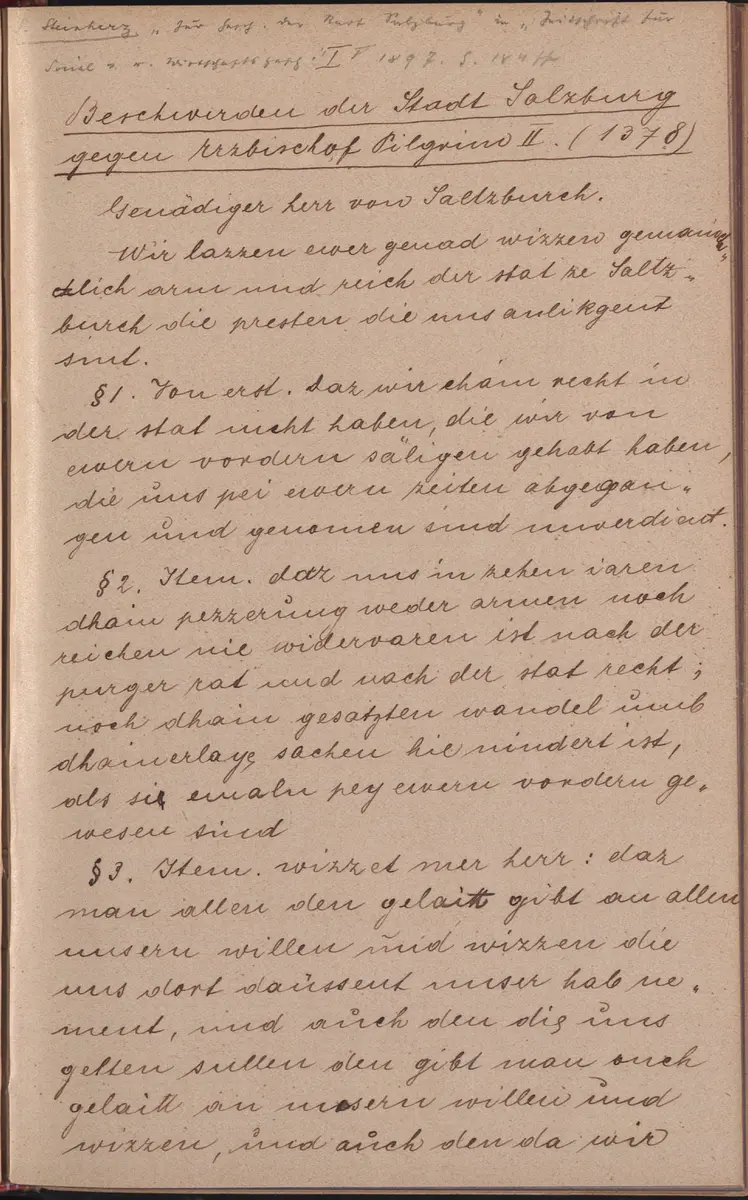 Steinherz „Zur Gesch. der Stadt Salzburg" in „Zeitschrift für
Social u. w. Wirtschaftsgesch." I V 1897. S.
Beschwerden der Stadt Salzburg
gegen Erzbischof Pilgrim II. (1378)
Genädiger herr von Saltzburch.
Wir lazzen ewer genad wizzen gemainch„
lich arm und reich der stat ze Saltz„
burch die presten die uns anlikgent
sint.
§1. Von erst. Daz wir chain recht in
der stat nicht haben, die wir von
ewern vordern säligen gehabt haben,
die uns pei ewern zeiten abgegan„
gen und genomen sind unverdient.
§2. Item. daz uns in zehen iaren
dhain pezzerung weder armen noch
reichen nie widervaren ist nach der
purger rat und nach der stat recht;
noch dhain gesatzten wandel umb
dhainerlaye sachen hie nindert ist,
als sie emaln pey ewern vordern ge„
wesen sind
§3. Item. wizzet mer herr: daz
man allen den gelaitt gibt an allen
unsern willen und wizzen die
uns dort daussent unser hab ne„
ment, und auch den die uns
gelten sullen den gibt man ouch
gelaitt an unsern willen und
wizzen, und auch den da wir